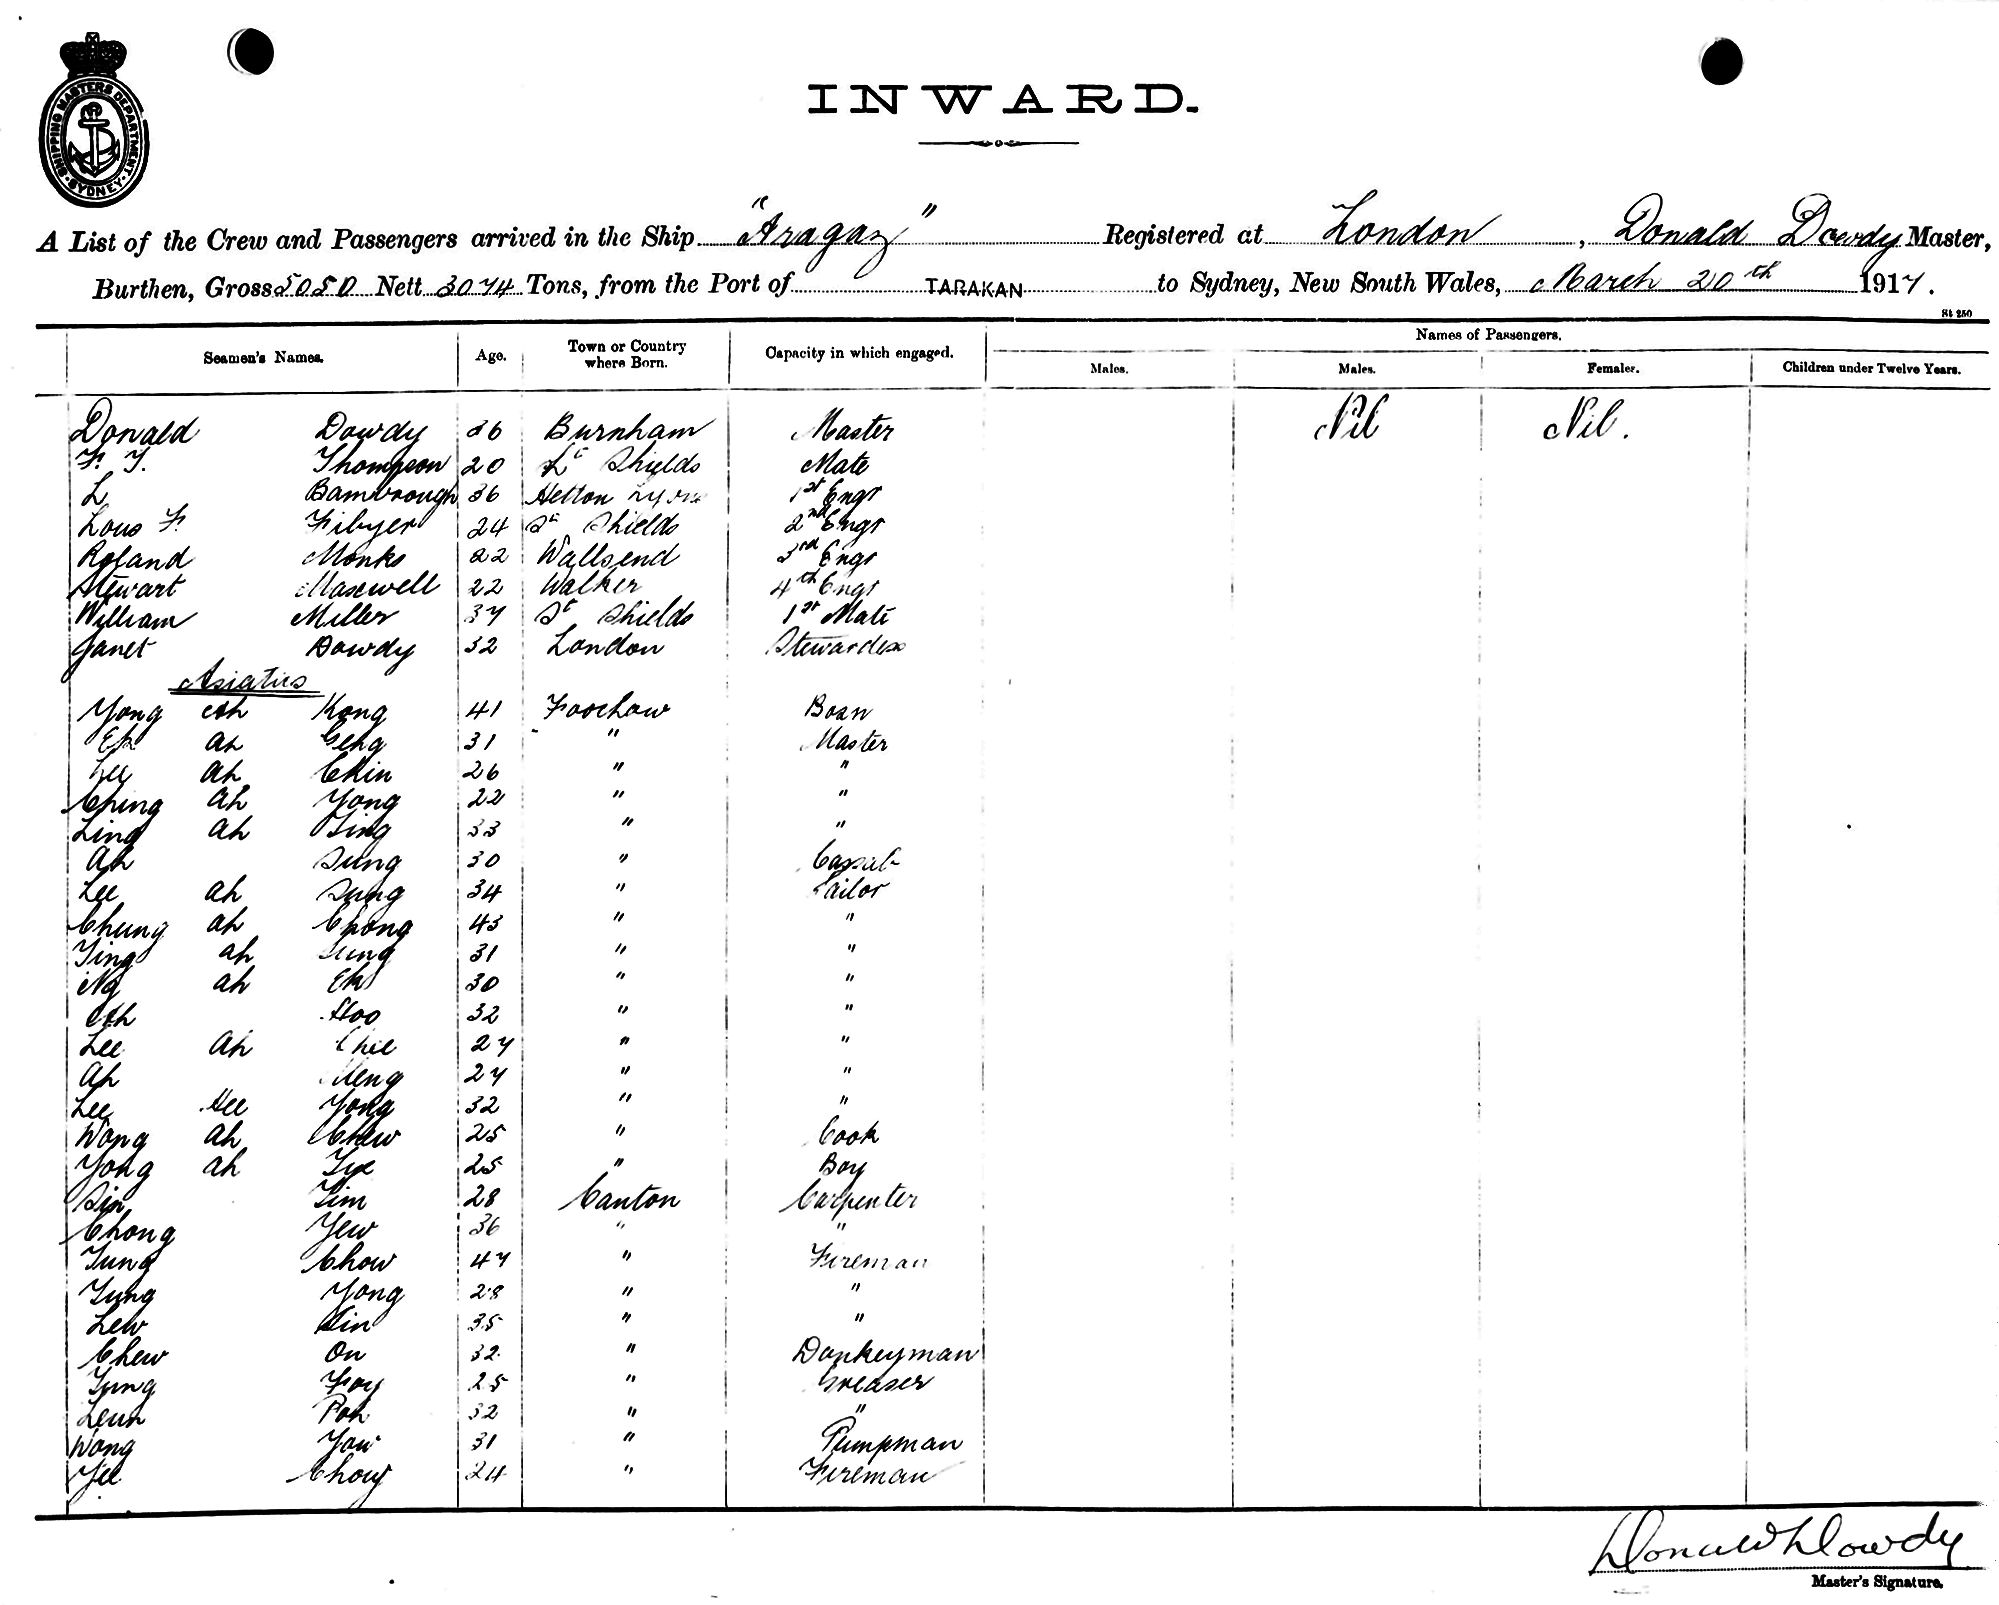 SHIPPING MASTERS DEPARTMENT SYDNEY
INWARD.
A List of the Crew and Passengers arrived in the Ship "Aragaz" Registered at London, Donald Dowdy Master,
Burthen, Gross 5050 Nett 3074 Tons, from the Port of TARAKAN to Sydney, New South Wales, March 20th 1917.
St 250
Seamen's Names. Age. Town or Country where Born. Capacity in which engaged. Names of Passengers.
Males. Males. Females. Children under Twelve Years.
Donald Dowdy 36 Burnham Master Nil Nil.
Thompson 20 Shields Mate
L Bambrough 36 Hetton 1st Engr
Lous F. 24 St Shields 2nd Engr
Roland Monks 22 Wallsend 3rd Engr
Stewart Maxwell 22 Walker 4th Engr
William Miller 37 St Shields 1st Mate
Janet Dowdy 32 London Stewardess
Asiatics
Yong Ah Kong 41 Foochow Bosn
Eh Ah 31 " Master
Lee Ah Chin 26 " "
Ching Ah Yong 22 " "
Ling Ah Ting 33 " "
Ah Sung 30 " Cassab
Lee Ah Sung 34 " Sailor
Chung Ah Chong 43 " "
Ting Ah Sung 31 " "
Ng Ah Eh 30 " "
Ah Hoo 32 " "
Lee Ah Chee 27 " "
Ah Meng 27 " "
Lee Hee Yong 32 " "
Wong Ah Chew 25 " Cook
Yong Ah 25 " Boy
Sin Tim 28 Canton Carpenter
Chong Yew 36 " "
Tung Chow 47 " Fireman
Tung Yong 28 " "
Lew Sin 35 " "
Chew On 32 " Donkeyman
Tung Foy 25 " Greaser
Leun Poh 32 " "
Wong Yow 31 " Pumpman
Yee Choy 24 " Fireman
Donald Dowdy
Master's Signature.